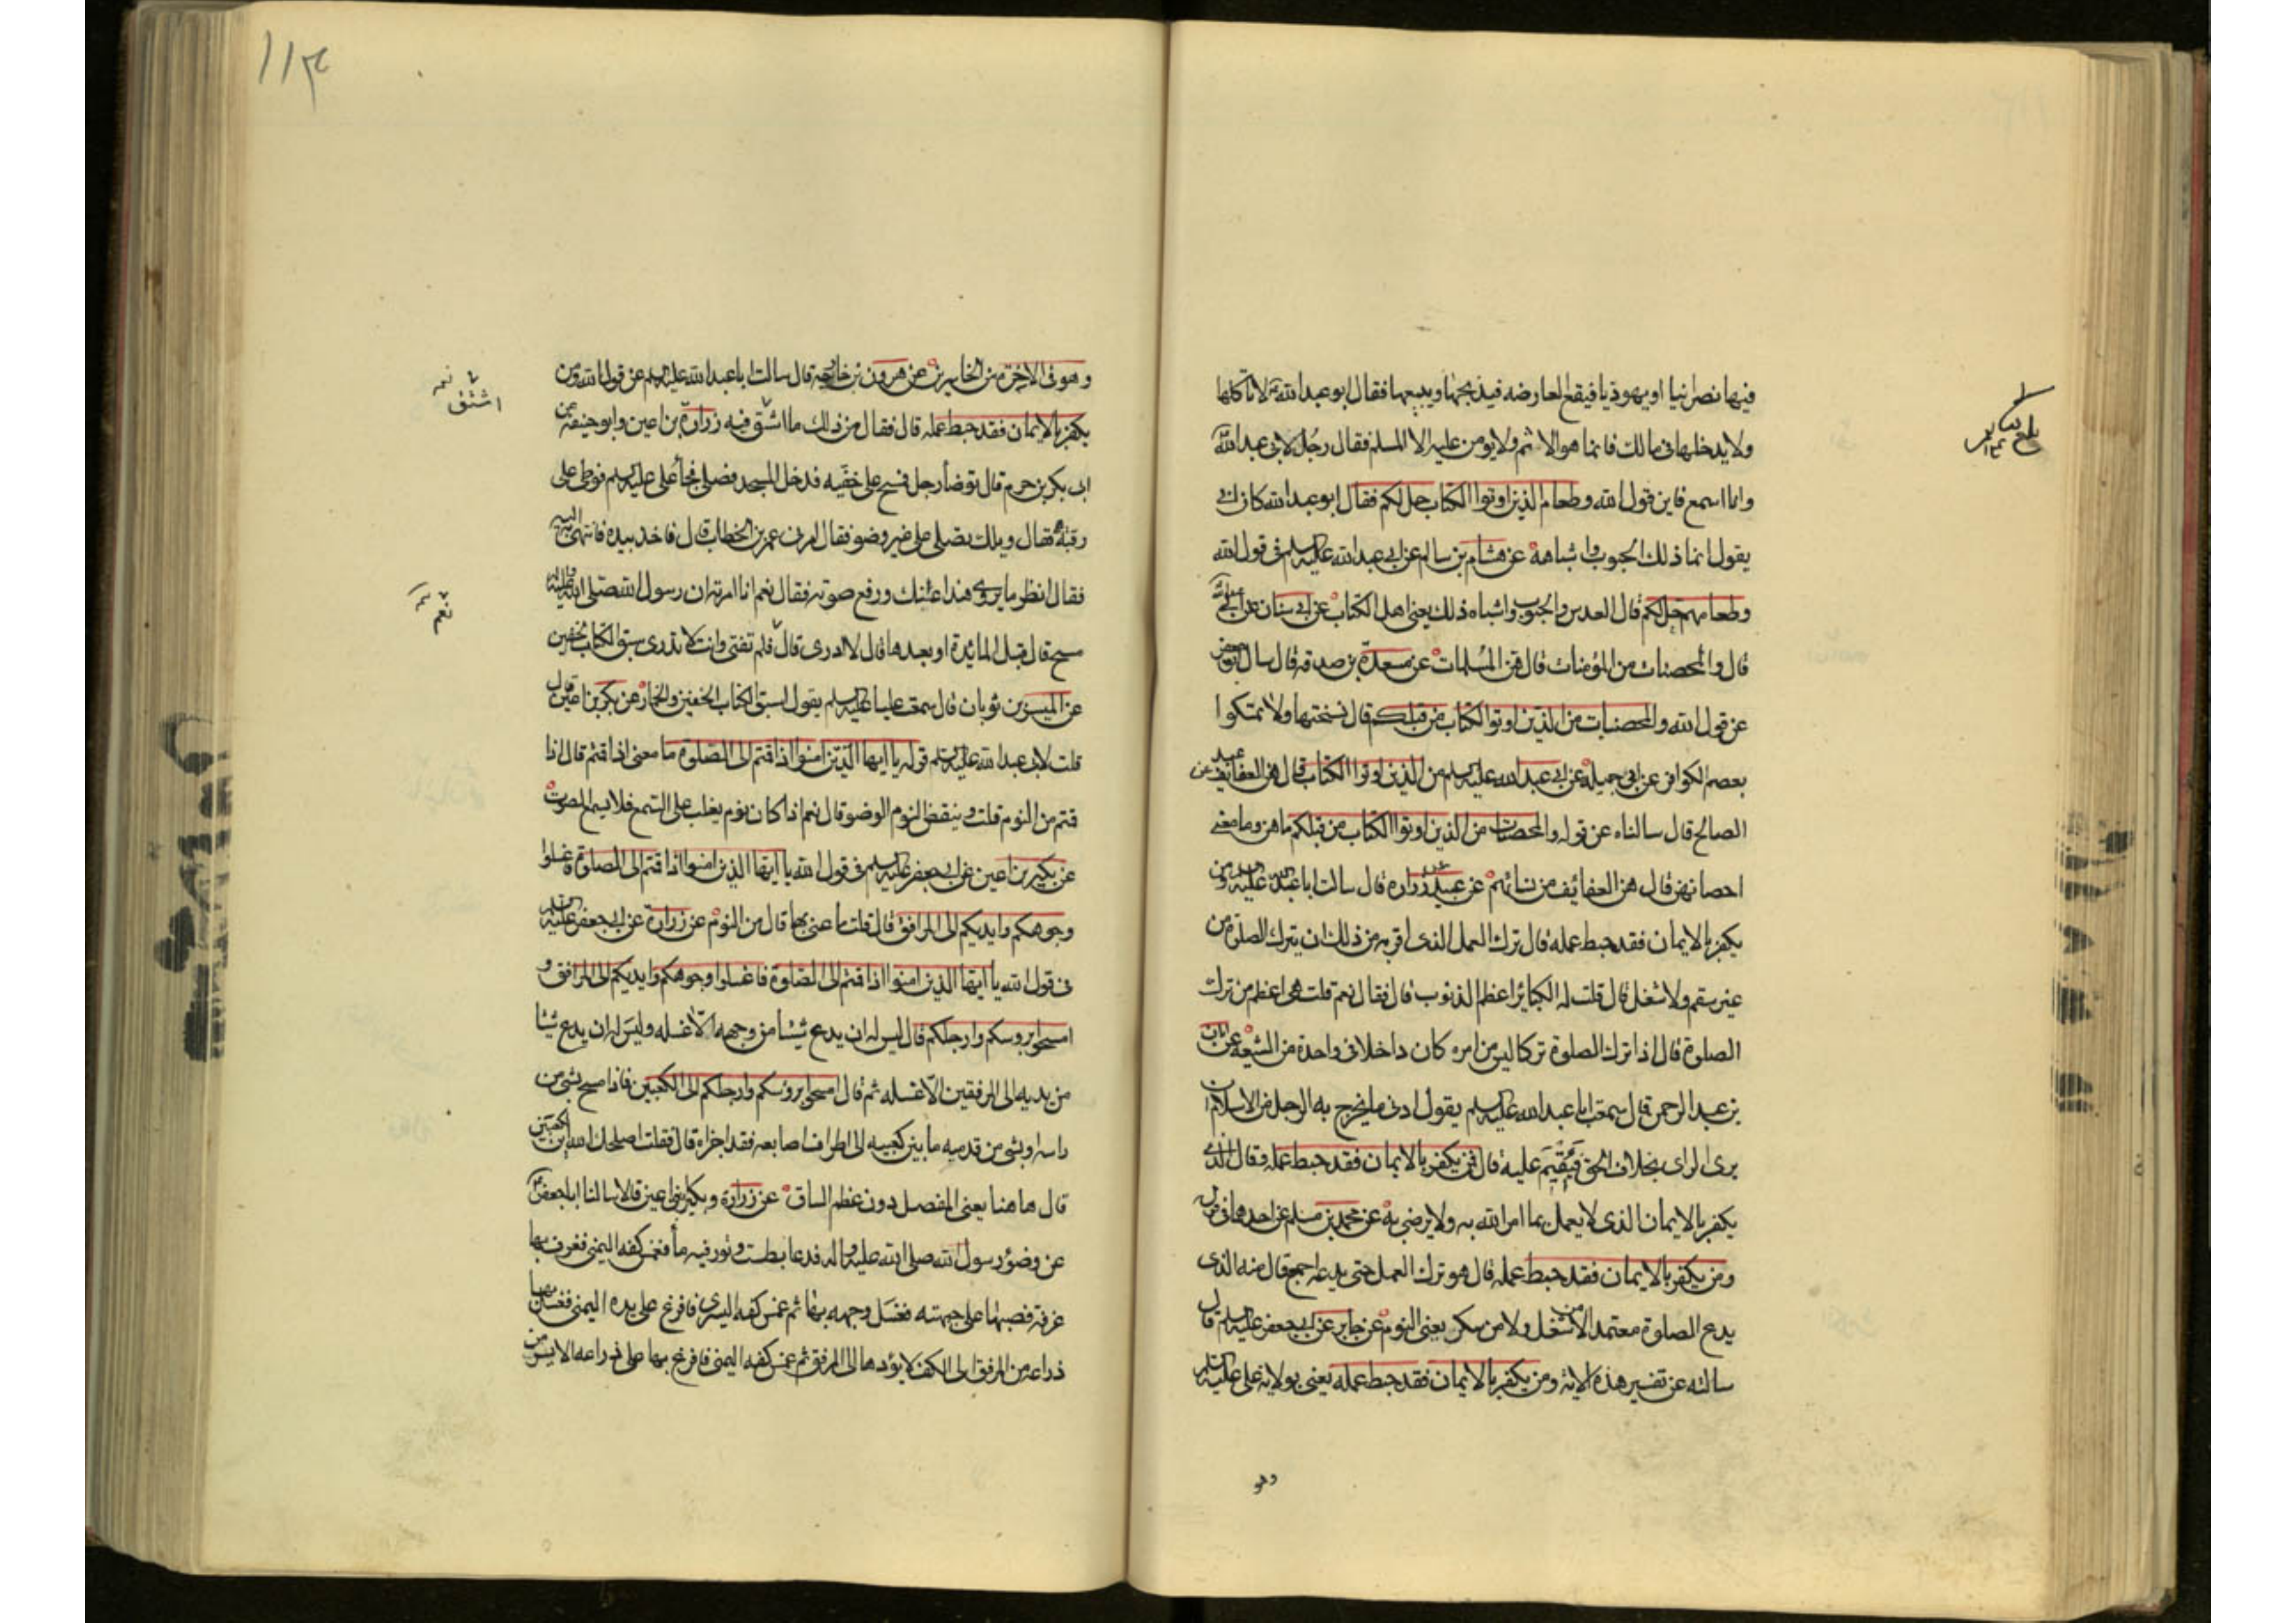 فيها نصرانيا او يهوديا فيقع العارضه فيذبحها ويبيعها فقال ابو عبد الله لا تاكلها
ولا يدخلها في مالك فانما هو الاسم ولا يومن عليه الا المسلم فقال رجل لابي عبد الله
وانا اسمع فاين قول الله وطعام الذين اوتوا الكتاب حل لكم فقال ابو عبد الله كان ابي
يقول انما ذلك الحبوب واشباهه عن هشام بن سالم عن ابي عبد الله عليه السلم في قول الله
وطعامهم حل لكم قال العدس والحبوب واشباه ذلك يعني اهل الكتاب عن ابن سنان عن ابي عبد الله
قال والمحصنات من المؤمنات قال هن المسلمات عن مسعدة بن صدقه قال سال ابو جعفر
عن قول الله والمحصنات من الذين اوتوا الكتاب من قبلكم قال نسختها ولا تمسكوا
بعصم الكوافر عن ابي جميله عن ابي عبد الله عليه السلم من الذين اوتوا الكتاب قال هن العفايف عن عبد
الصالح قال سالناه عن قوله والمحصنات من الذين اوتوا الكتاب من قبلكم ما هن وما معنى
احصانهن قال هن العفائف من نسائهم عن عبيد بن زراره قال سالت ابا عبد الله عليه السلم ومن
يكفر بالايمان فقد حبط عمله قال ترك العمل الذي اقر به من ذلك ان يترك الصلوة من
غير سقم ولا شغل قال قلت له الكبائر اعظم الذنوب قال فقال نعم قلت هي اعظم من ترك
الصلوة قال اذا ترك الصلوة تركا ليس من امره كان داخلا في واحدة من السبعه عن ابان
بن عبد الرحمن قال سمعت ابا عبد الله عليه السلم يقول ادنى ما يخرج به الرجل من الاسلام ان
يرى الراى بخلاف الحق فيقيم عليه قال ومن يكفر بالايمان فقد حبط عمله وقال الذي
يكفر بالايمان الذي لا يعمل بما امر الله به ولا يرضى به عن محمد بن مسلم عن احدهما في قول
ومن يكفر بالايمان فقد حبط عمله قال هو ترك العمل حتى يدعه اجمع قال منه الذي
يدع الصلوة متعمدا لا من شغل ولا من سكر يعني النوم عن جابر عن ابي جعفر عليه السلم قال
سالته عن تفسير هذه الاية ومن يكفر بالايمان فقد حبط عمله يعني بولاية علي عليه السلم
وهو
١١٣
وهو في الاخرة من الخاسرين عن هرون بن خارجه قال سالت ابا عبد الله عليه السلم عن قول الله ومن
يكفر بالايمان فقد حبط عمله قال فقال من ذلك ما اشتق فيه زرارة بن اعين وابو حنيفه عن
ابي بكر بن حزم قال توضأ رجل فمسح على خفيه فدخل المسجد فصلى فجأ علي عليه السلم فوطى على
رقبته فقال ويلك تصلي على غير وضو فقال امرني عمر بن الخطاب قال فاخذ بيده فانتهى به اليه
فقال انظر ما يروى هذا عنك ورفع صوته فقال نعم انا امرته ان رسول الله صلى الله عليه واله
مسح قال قبل المائدة او بعدها قال لا ادرى قال فلم تفتى وانت لا تدرى سبق الكتاب الخفين
عن الميسر بن ثوبان قال سمعت عليا عليه السلم يقول سبق الكتاب الخفين والخمار عن بكير بن اعين قال
قلت لابي عبد الله عليه السلم قوله يا ايها الذين امنوا اذا قمتم الى الصلوة ما معنى اذا قمتم قال اذا
قمتم من النوم قلت وينقض النوم الوضو قال نعم اذا كان نوم يغلب على السمع فلا يسمع الصوت
عن بكير بن اعين عن ابي جعفر عليه السلم في قول الله يا ايها الذين امنوا اذا قمتم الى الصلوة فاغسلوا
وجوهكم وايديكم الى المرافق قال قلت ما عنى بها قال من النوم عن زرارة عن ابي جعفر عليه السلم
في قول الله يا ايها الذين امنوا اذا قمتم الى الصلوة فاغسلوا وجوهكم وايديكم الى المرافق و
امسحوا بروسكم وارجلكم قال ليس له ان يدع شيئا من وجهه الا غسله وليس له ان يدع شيئا
من يديه الى المرفقين الا غسله ثم قال امسحوا بروسكم وارجلكم الى الكعبين فاذا مسح بشئ من
راسه او بشئ من قدميه ما بين كعبيه الى اطراف اصابعه فقد اجزاه قال فقلت اصلحك الله اين الكعبين
قال هاهنا يعني المفصل دون عظم الساق عن زرارة وبكير ابني اعين قالا سالنا ابا جعفر
عن وضوء رسول الله صلى الله عليه واله فدعا بطست او تور فيه مأ فغمس كفه اليمنى فغرف بها
غرفة فصبها على جبهته فغسل وجهه بها ثم غمس كفه اليسرى فافرغ على يده اليمنى فغسل بها
ذراعه من المرفق الى الكف لا يردها الى المرفق ثم غمس كفه اليمنى فافرغ بها على ذراعه الايسر من
اشتق
نعم